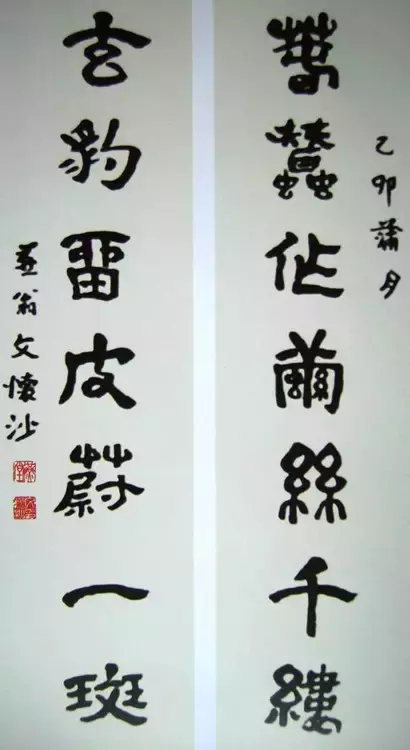 乙卯蒲月
春蠶作繭絲千縷
玄豹留皮蔚一斑
燕翁文懷沙